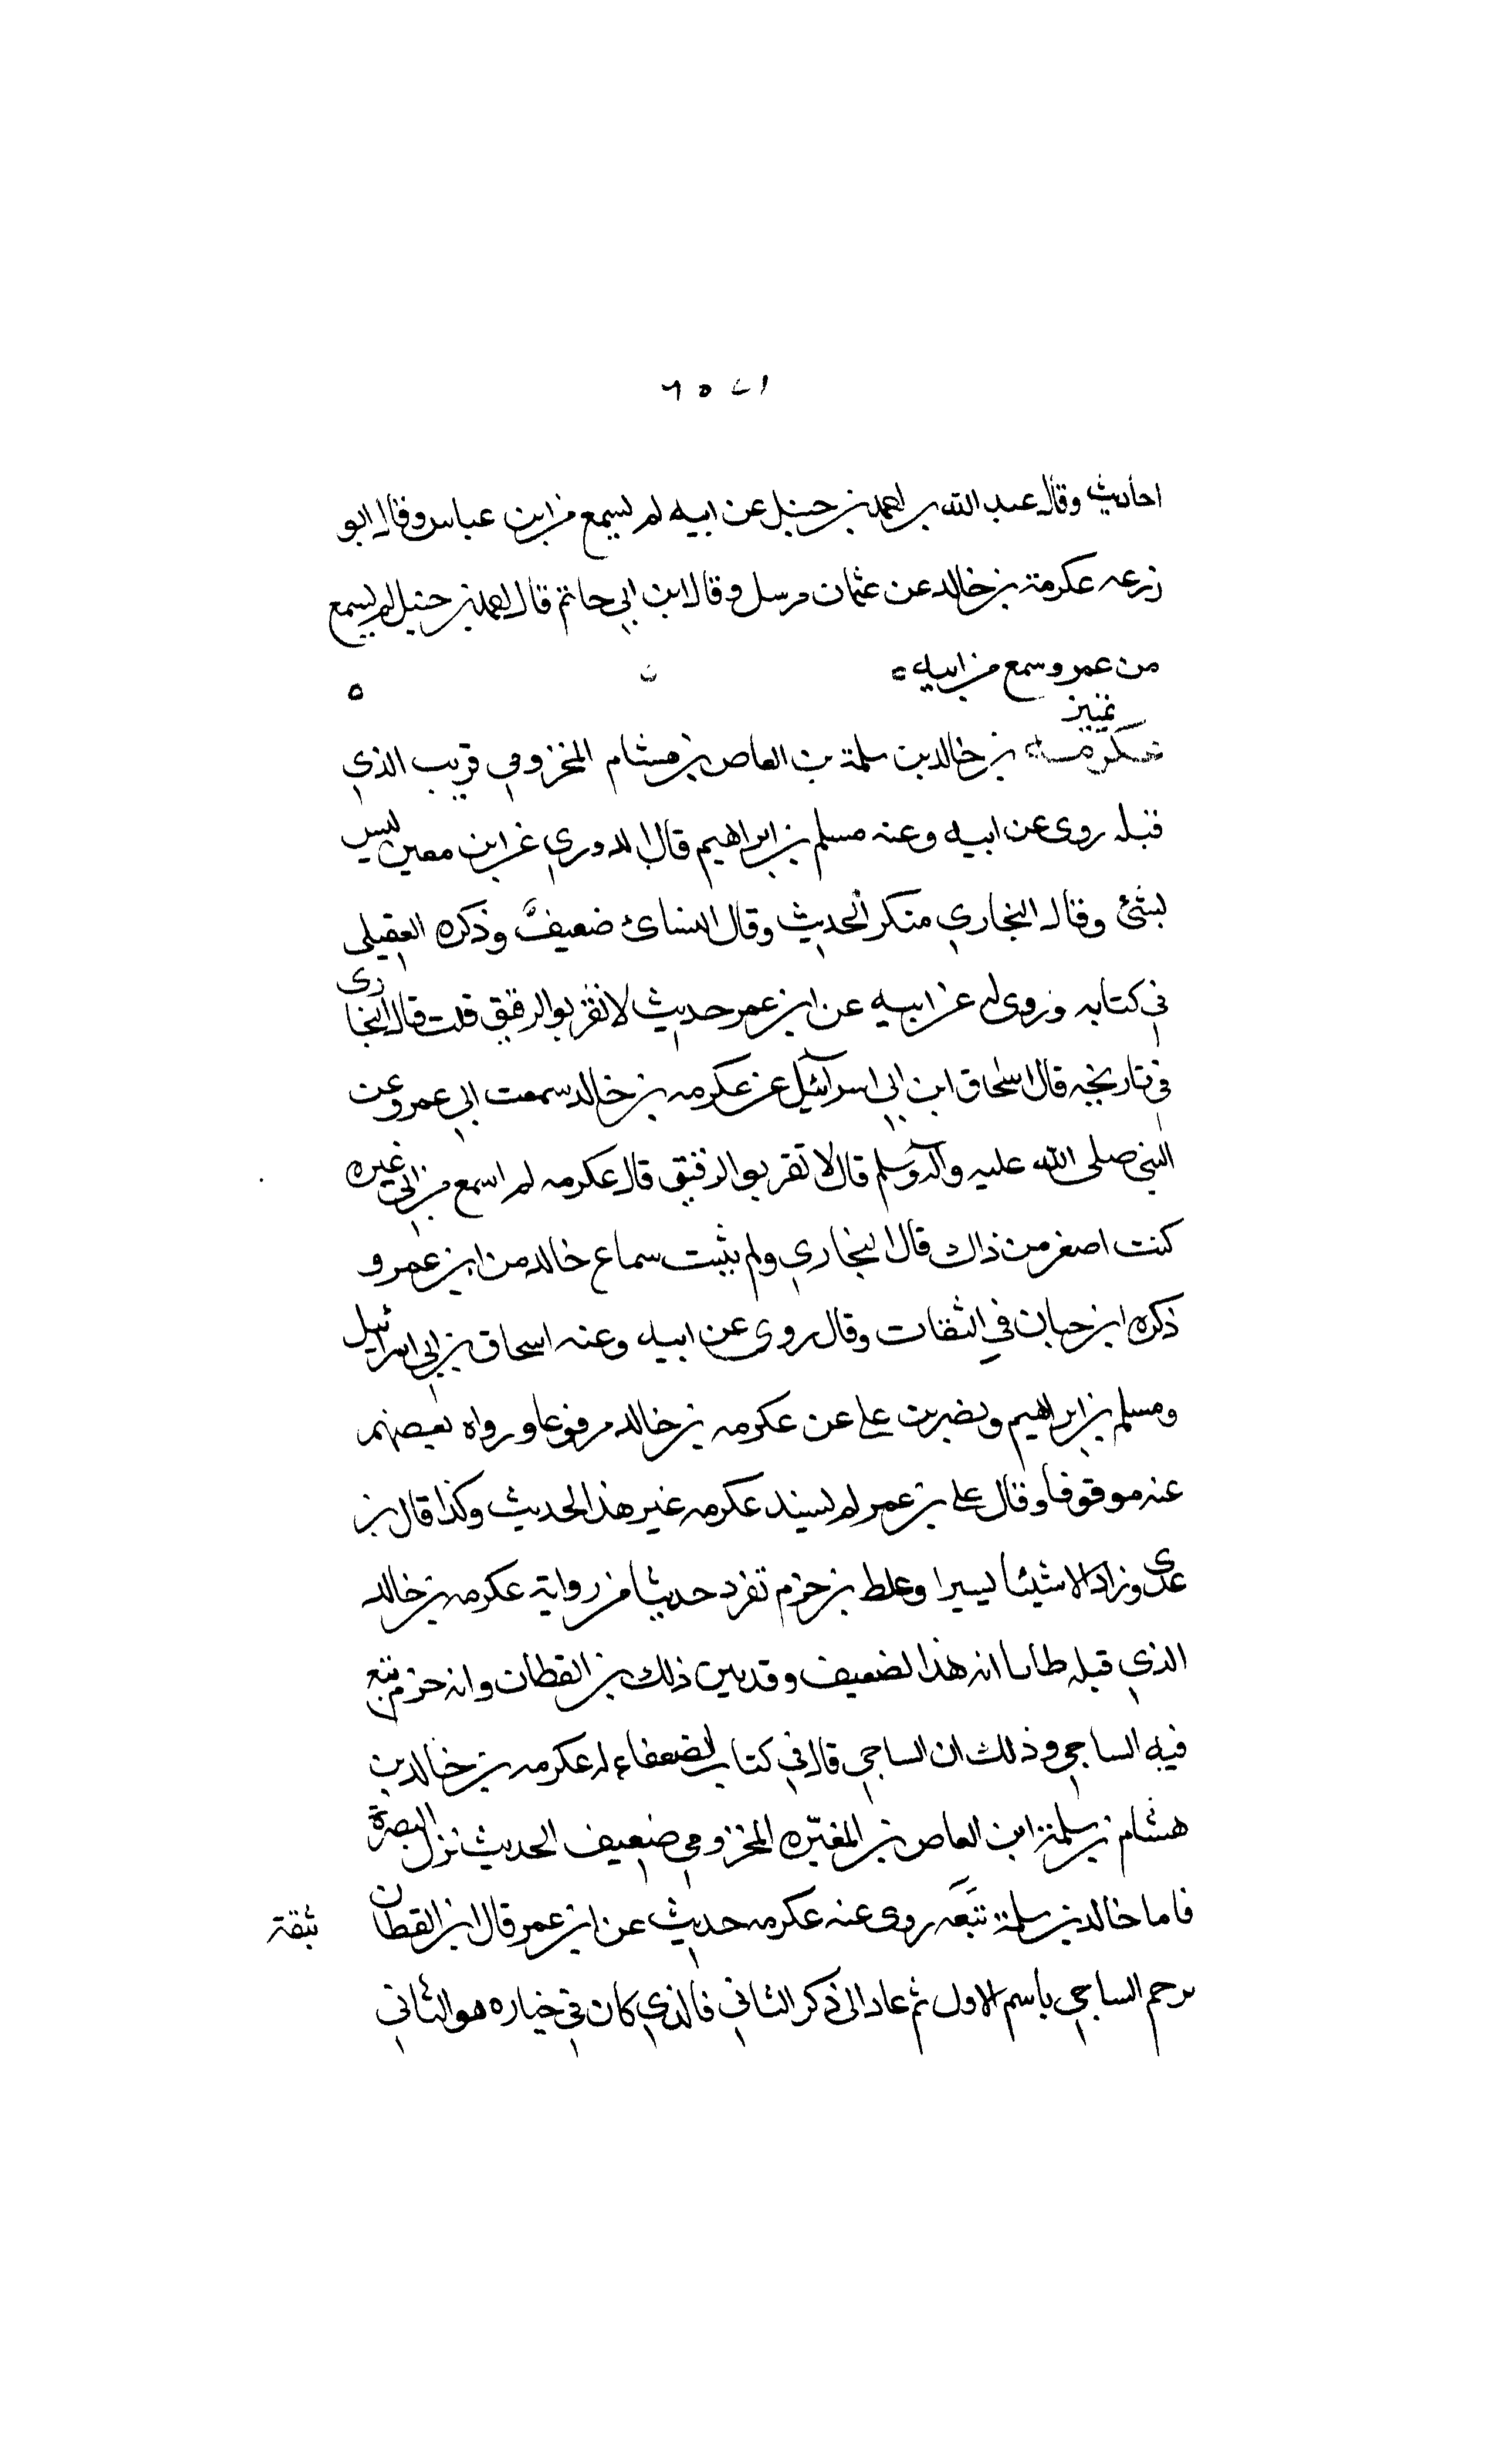 احاديث وقال عبد الله بن احمد بن حنبل عن ابيه لم يسمع من ابن عباس وقال ابو
زرعه عكرمة بن خالد عن عثمان مرسل وقال ابن ابي حاتم قال احمد بن حنبل لم يسمع
من عمر وسمع من ابيه
تمييز
عكرمه بن خالد بن سلمة بن العاص بن هشام المخزومي قريب الذي
قبله روى عن ابيه وعنه مسلم بن ابراهيم قال الدوري عن ابن معين ليس
بشئ وقال البخاري منكر الحديث وقال النسائ ضعيف وذكره العقيلى
في كتابه وروى له عن ابيه عن ابن عمر حديث لا تقربوا الرقيق قلت قال البخارى
في تاريخه قال اسحاق ابن ابى اسرآئيل عن عكرمه بن خالد سمعت ابي عمر وعن
النبي صلى الله عليه وآله وسلم قال لا تقربوا الرقيق قال عكرمه لم اسمع من ابي غيره
كنت اصغر من ذاك قال البخاري ولم يثبت سماع خالد من ابن عمر و
ذكره ابن حبان في الثقات وقال روى عن ابيه وعنه اسحاق بن ابي اسرائيل
ومسلم بن ابراهيم ونضر بن علي عن عكرمه بن خالد مرفوعا ورواه بعضهم
عنه موقوفا وقال علي بن عمر لم يسند عكرمه غير هذا الحديث وكذا قال بن
عدى وزاد الا شيئا يسيرا وغلط بن حزم تفرد حديثا من رواية عكرمه بن خالد
الذي قبله ظانا انه هذا لضعيف وقد بين ذلك بن القطان وانه حزم تبع
فيه الساجي وذلك ان الساجي قال في كتاب الضعفاء له عكرمه بن خالد بن
هشام بن سلمة ابن العاص بن المغيره المخزومي ضعيف الحديث نزل البصرة
فاما خالد بن سلمة تبعه روى عنه عكرمه حديث عن ابن عمر قال ابن القطان
ثقة
ترجم الساجي باسم الاول ثم عاد الى ذكر الثاني فالذي كان في خياره هو الثاني